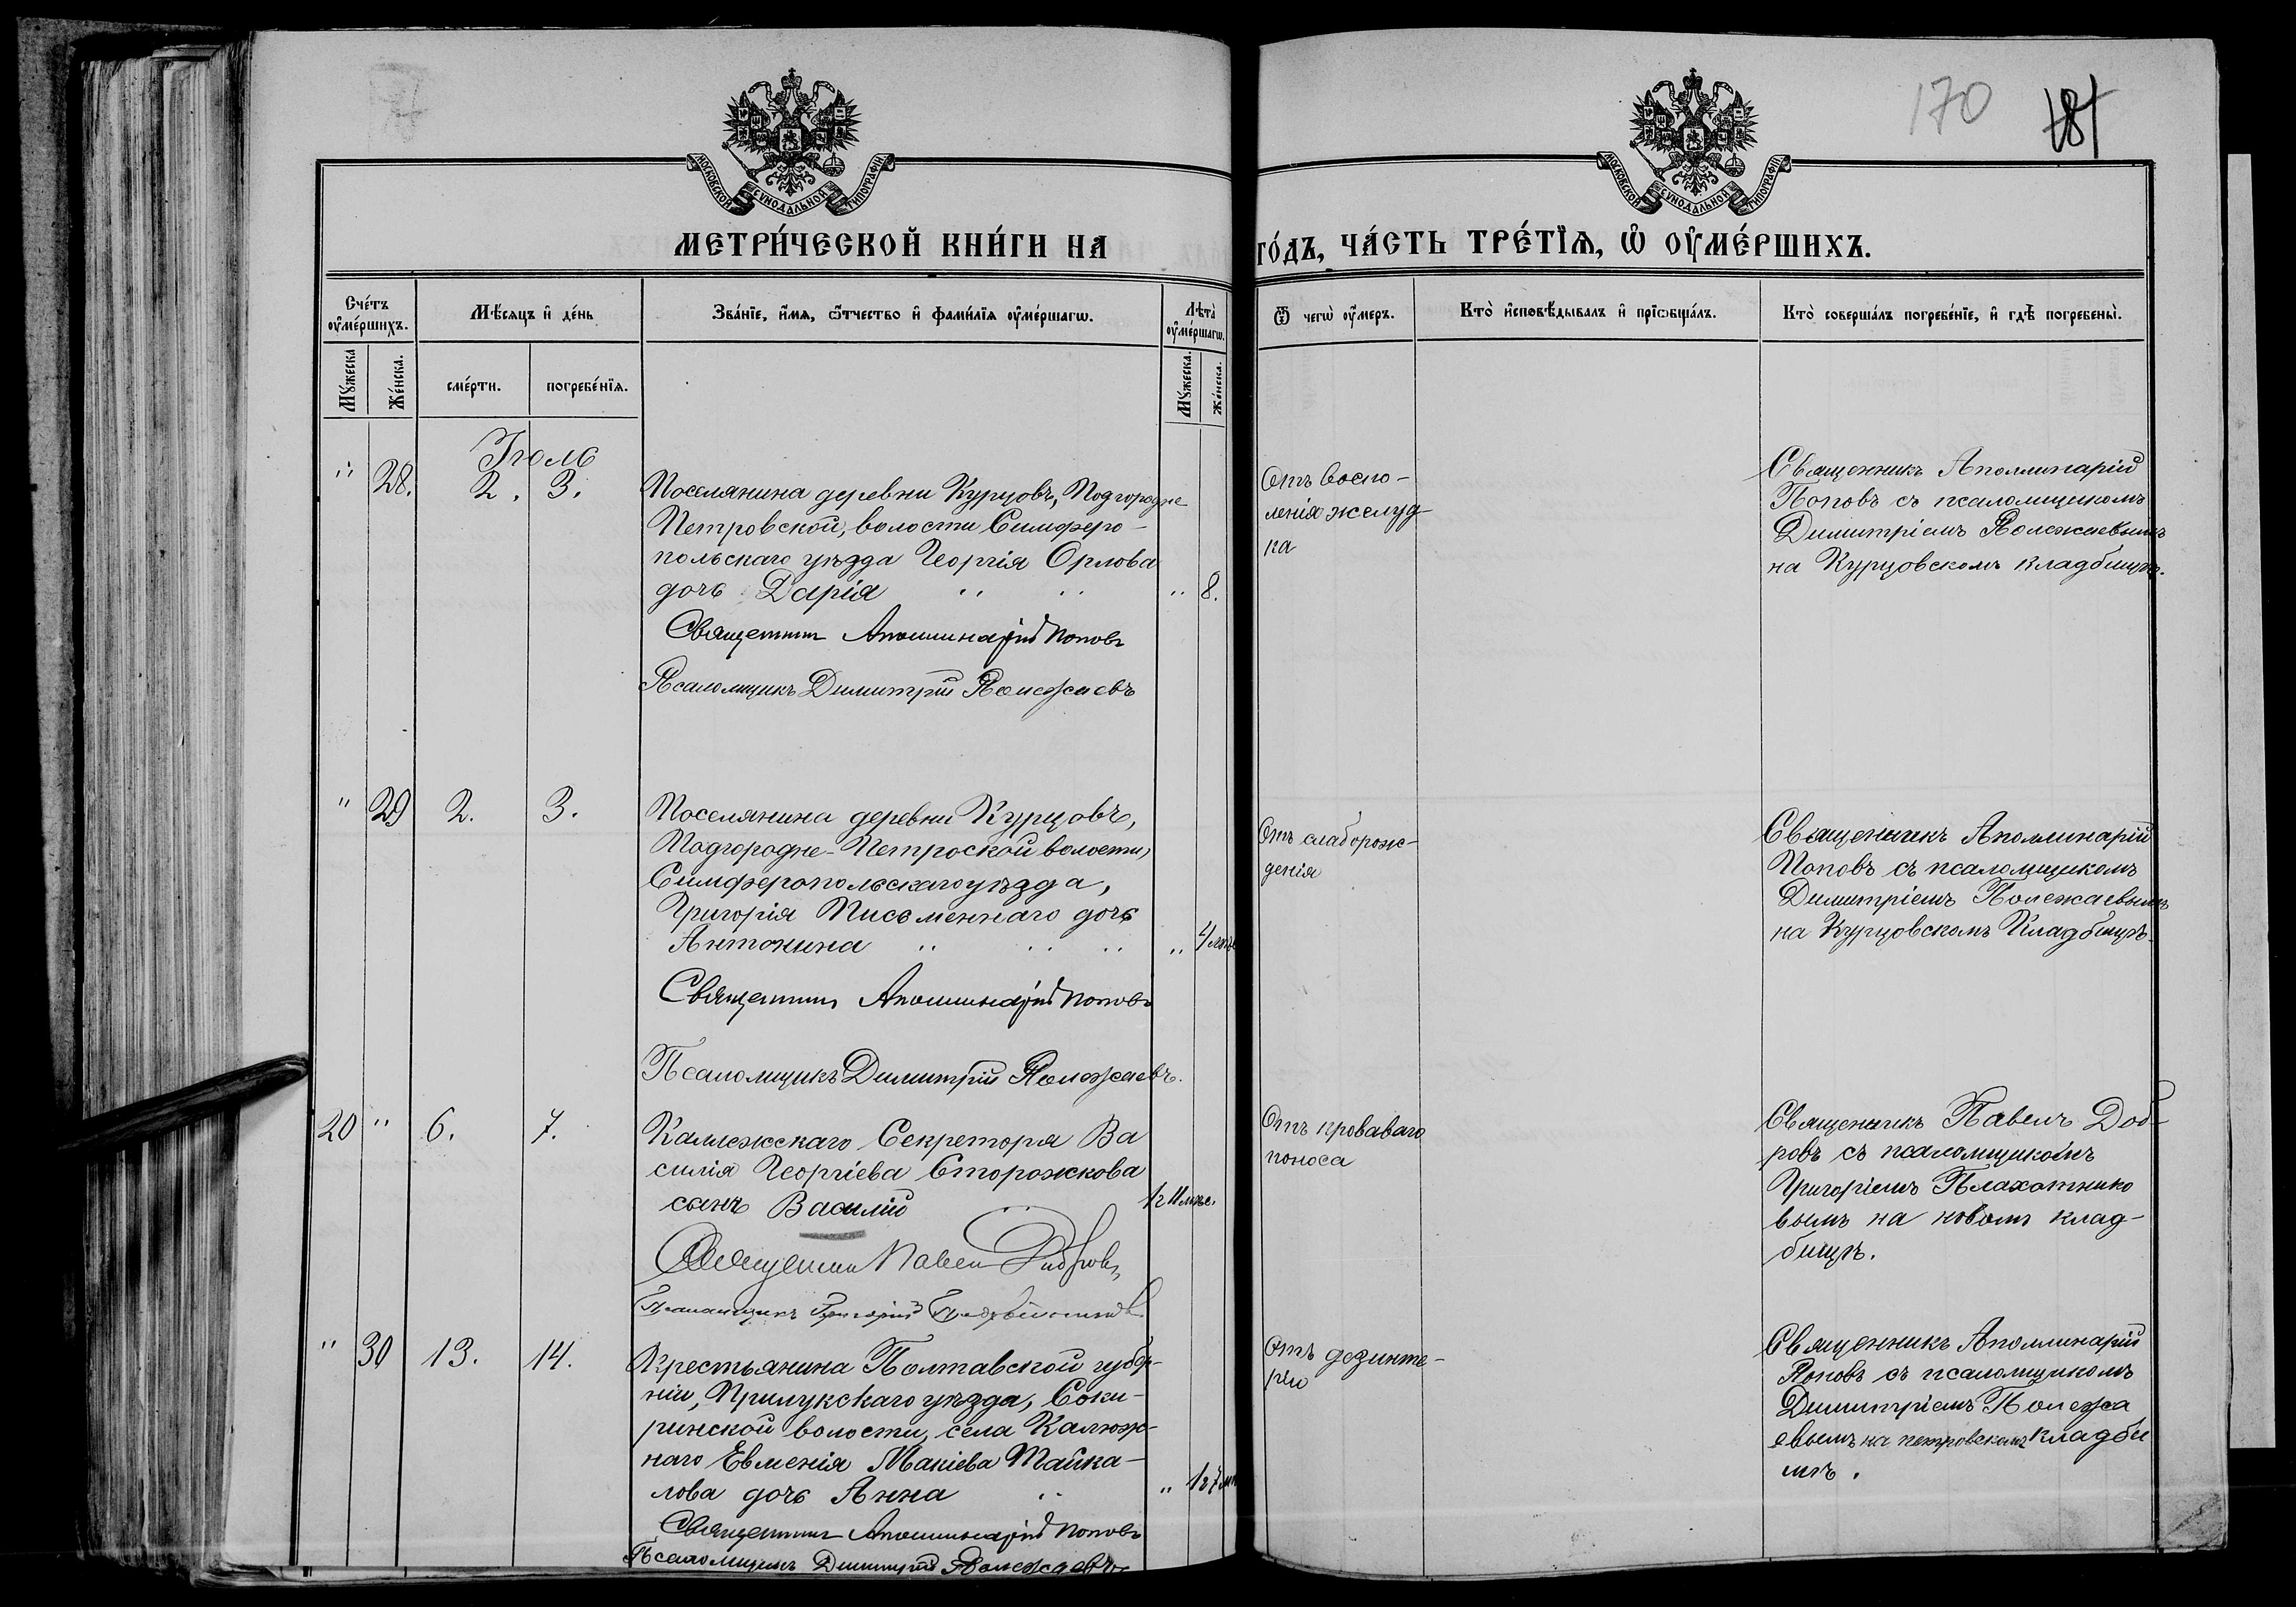 170
181
МОСКОВСКОЙ СУНОДАЛЬНОЙ ТИПОГРАФІИ
МОСКОВСКОЙ СУНОДАЛЬНОЙ ТИПОГРАФІИ
МЕТРИ́ЧЕСКОЙ КНИ́ГИ НА
ГО́ДЪ, ЧА́СТЬ ТРЕ́ТЇѦ, Ѡ҆ ОУ҆МЕ́РШИХЪ.
Сче́тъ оу҆ме́ршихъ.
Мѣ́сяцъ и҆ де́нь
Зва́нїе, и҆́мя, ѻ҆́тчество и҆ фами́лїя оу҆ме́ршагѡ.
Лѣ́та оу҆ме́ршагѡ.
Мꙋ́жеска
Же́нска.
сме́рти.
погребе́нїѧ.
Мꙋ́жеска.
Же́нска.
Ѿ чегѡ̀ оу҆́меръ.
Кто̀ и҆сповѣ́дывалъ и҆ прїѡбща́лъ.
Кто̀ соверша́лъ погребе́нїе, и҆ гдѣ̀ погребены̀.
Іюль
" 28. 2. 3.
Поселянина деревни Курцовъ, Подгородне
Петровской, волости Симферо-
польскаго уѣзда Георгія Орлова
дочь Дарія " " " 8.
Священникъ Аполлинарій Поповъ
Псаломщикъ Димитрій Полежаевъ
Отъ воспо-
ленія желуд-
ка
Священникъ Аполлинарій
Поповъ съ псаломщикомъ
Димитріемъ Полежаевымъ
на Курцовскомъ кладбищѣ.
" 29 2. 3.
Поселянина деревни Курцовъ,
Подгородне-Петроской волости,
Симферопольскаго уѣзда,
Григорія Письменнаго дочь
Антонина " " " " 4 мѣс
Священникъ Аполлинарій Поповъ
Псаломщикъ Димитрій Полежаевъ.
Отъ слаборож-
денія
Священникъ Аполлинарій
Поповъ съ псаломщикомъ
Димитріемъ Полежаевымъ
на Курцовскомъ Кладбищѣ.
20 " 6. 7.
Калležскаго Секреторя Ва
силія Георгіева Сторожкова
сынъ Василій 1 г 11 мѣс.
Священникъ Павелъ Добровъ
Псаломщикъ Григорій
Отъ кроваваго
поноса
Священникъ Павелъ Доб-
ровъ съ псаломщикомъ
Григоріемъ Плахотнико
вымъ на новомъ клад-
бищѣ.
" 30 13. 14.
Крестьянина Полтавской губер-
ніи, Прилукскаго уѣзда, Соки-
ринской волости, села Калюж-
наго Евменія Макіева Тайка-
лова дочь Анна " " 1 г 7 м
Священникъ Аполлинарій Поповъ
Псаломщикъ Димитрій Полежаевъ
Отъ дезинте-
ріи
Священникъ Аполлинарій
Поповъ съ псаломщикомъ
Димитріемъ Полежа
евымъ на петровскомъ кладби
щѣ.